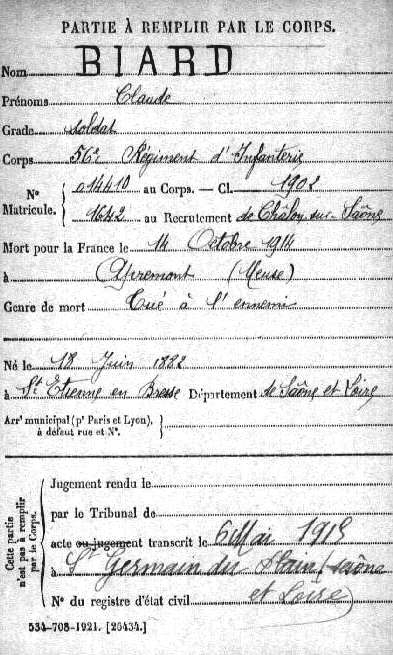 PARTIE À REMPLIR PAR LE CORPS.
Nom BIARD
Prénoms Claude
Grade soldat
Corps 56e Régiment d'Infanterie
N° Matricule. { 014410 au Corps. — Cl. 1902
1642 au Recrutement de Châlon sur-Saône
Mort pour la France le 14 Octobre 1914
à Apremont (Meuse)
Genre de mort Tué à l'ennemi
Né le 18 Juin 1882
à St Etienne en Bresse Département de Saône et Loire
Arrt municipal (pr Paris et Lyon), }
à défaut rue et N°.
Cette partie n'est pas à remplir par le Corps.
Jugement rendu le
par le Tribunal de
acte ou jugement transcrit le 6 Mai 1915
à St Germain du Plain (Saône
et Loire)
N° du registre d'état civil
534-708-1921. [26434.]